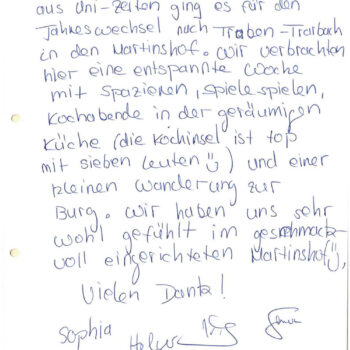 aus Uni-Zeiten ging es für den
Jahreswechsel nach Traben-Trarbach
in den Martinshof. Wir verbrachten
hier eine entspannte Woche
mit Spazieren, Spiele spielen,
Kochabende in der geräumigen
Küche (die Kochinsel ist top
mit sieben Leuten) und einer
kleinen Wanderung zur
Burg. Wir haben uns sehr
wohl gefühlt im geschmack-
voll eingerichteten Martinshof,
Vielen Dank!
Sophia